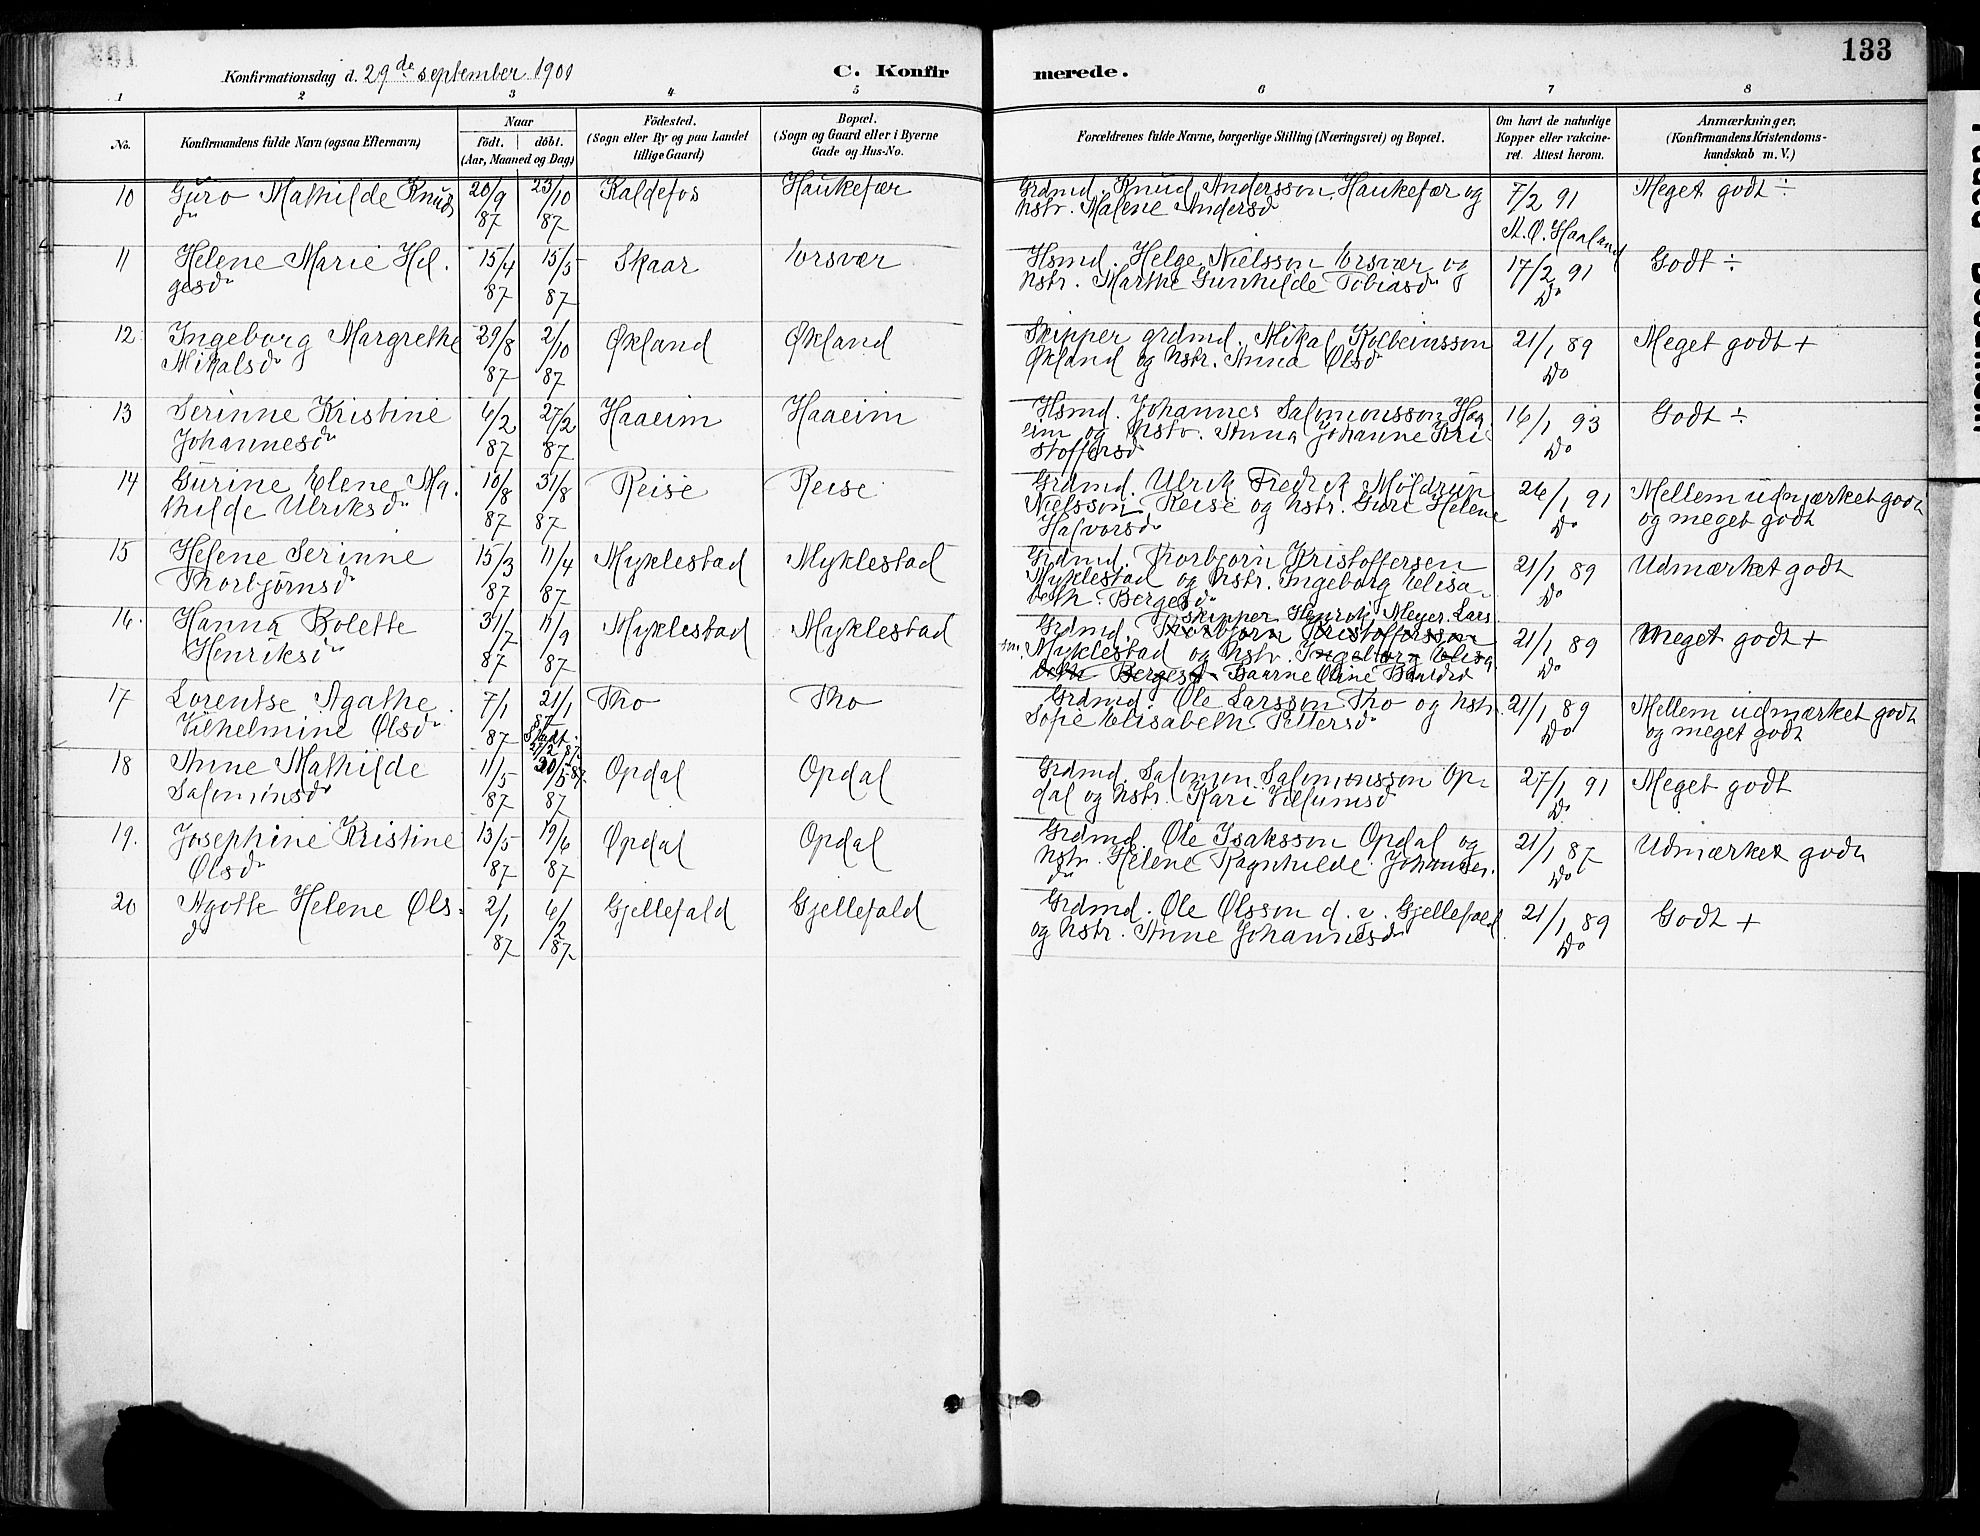 133
Konfirmationsdag d. 29de september 1901
C. Konfirmerede.
1 2 3 4 5 6 7 8
No.
Konfirmandens fulde Navn (ogsaa Efternavn)
Naar
født. | döbt.
(Aar, Maaned og Dag)
Födested.
(Sogn eller By og paa Landet
tillige Gaard)
Bopæl.
(Sogn og Gaard eller i Byerne
Gade og Hus-No.
Forældrenes fulde Navne, borgerlige Stilling (Næringsvei) og Bopæl.
Om havt de naturlige
Kopper eller vakcine-
ret. Attest herom.
Anmærkninger,
(Konfirmandens Kristendoms-
kundskab m. V.)
10 Guro Mathilde Knuds 20/9 23/10 Kaldefos Haukefær Grdmd. Knud Andersson Haukefær og 7/2 91 Meget godt ÷
dr 87 87 hstr. Malene Andersd
A. O. Haaland
11 Helene Marie Hel. 15/4 15/5 Skaar Ersvær Hsmd. Helge Nielsson Ersvær og 17/2 91 Godt ÷
gesdr 87 87 hstr. Marthe Gunhilde Tobiasdr Do
12 Ingeborg Margrethe 29/8 2/10 Økland Økland Skipper grdmd. Mikal Kolbeinsson 21/1 89 Meget godt +
Mikalsdr 87 87 Økland og hstr. Anna Olsdr Do
13 Serinne Kristine 6/2 27/2 Haaeim Haaeim Hsmd. Johannes Salomonsson Haa 16/1 93 Godt ÷
Johannesdr 87 87 eim og hstr. Anna Johanne Kri Do
stoffersdr
14 Gurine Elene Ma. 10/8 31/8 Reise Reise Grdmd. Ulrik Fredrik Möldrup 26/1 91 Mellem udmærket godt
thilde Ulriksdr 87 87 Nielsson Reise og hstr. Guri Helene Do og meget godt
Halvorsdr
15 Helene Serinne 15/3 11/4 Myklestad Myklestad Grdmd. Thorbjørn Kristoffersen 21/1 89 Udmærket godt
Thorbjørnsdr 87 87 Myklestad og hstr. Ingeborg Elisa- Do
beth Bergesdr
skipper Henrik Meyer Lars
16. Hanna Bolette 31/7 11/9 Myklestad Myklestad Grdmd. Thorbjørn Kristoffersson 21/1 89 Meget godt +
Henriksdr 87 87 Myklestad og hstr. Ingeborg Elisa Do
beth Bergesd Oline
17 Lorentse Agathe 7/1 21/1 Tho Tho Grdmd. Ole Larsson Tho og hstr. 21/1 89 Mellem udmærket godt
Vilhelmine Olsdr 87 87 Sofie Elisabeth Pettersdr Do og meget godt
Stadf. 27/2 87
18 Anne Mathilde 11/5 30/5 87 Opdal Opdal Grdmd. Salomon Salomonsson Op- 27/1 91 Meget godt
Salomonsdr 87 87 dal og hstr. Kari Do
19. Josephine Kristine 13/5 19/6 Opdal Opdal Grdmd. Ole Isaksson Opdal og 21/1 87 Udmærket godt
Olsdr 87 87 hstr. Helene Ragnhilde Johannes. Do
dr
20 Agothe Helene Ols- 2/1 6/2 Gjellefald Gjellefald Grdmd. Ole Olsson d. y. Gjellefald 21/1 89 Godt +
dr 87 87 og hstr. Anne Johannesdr Do